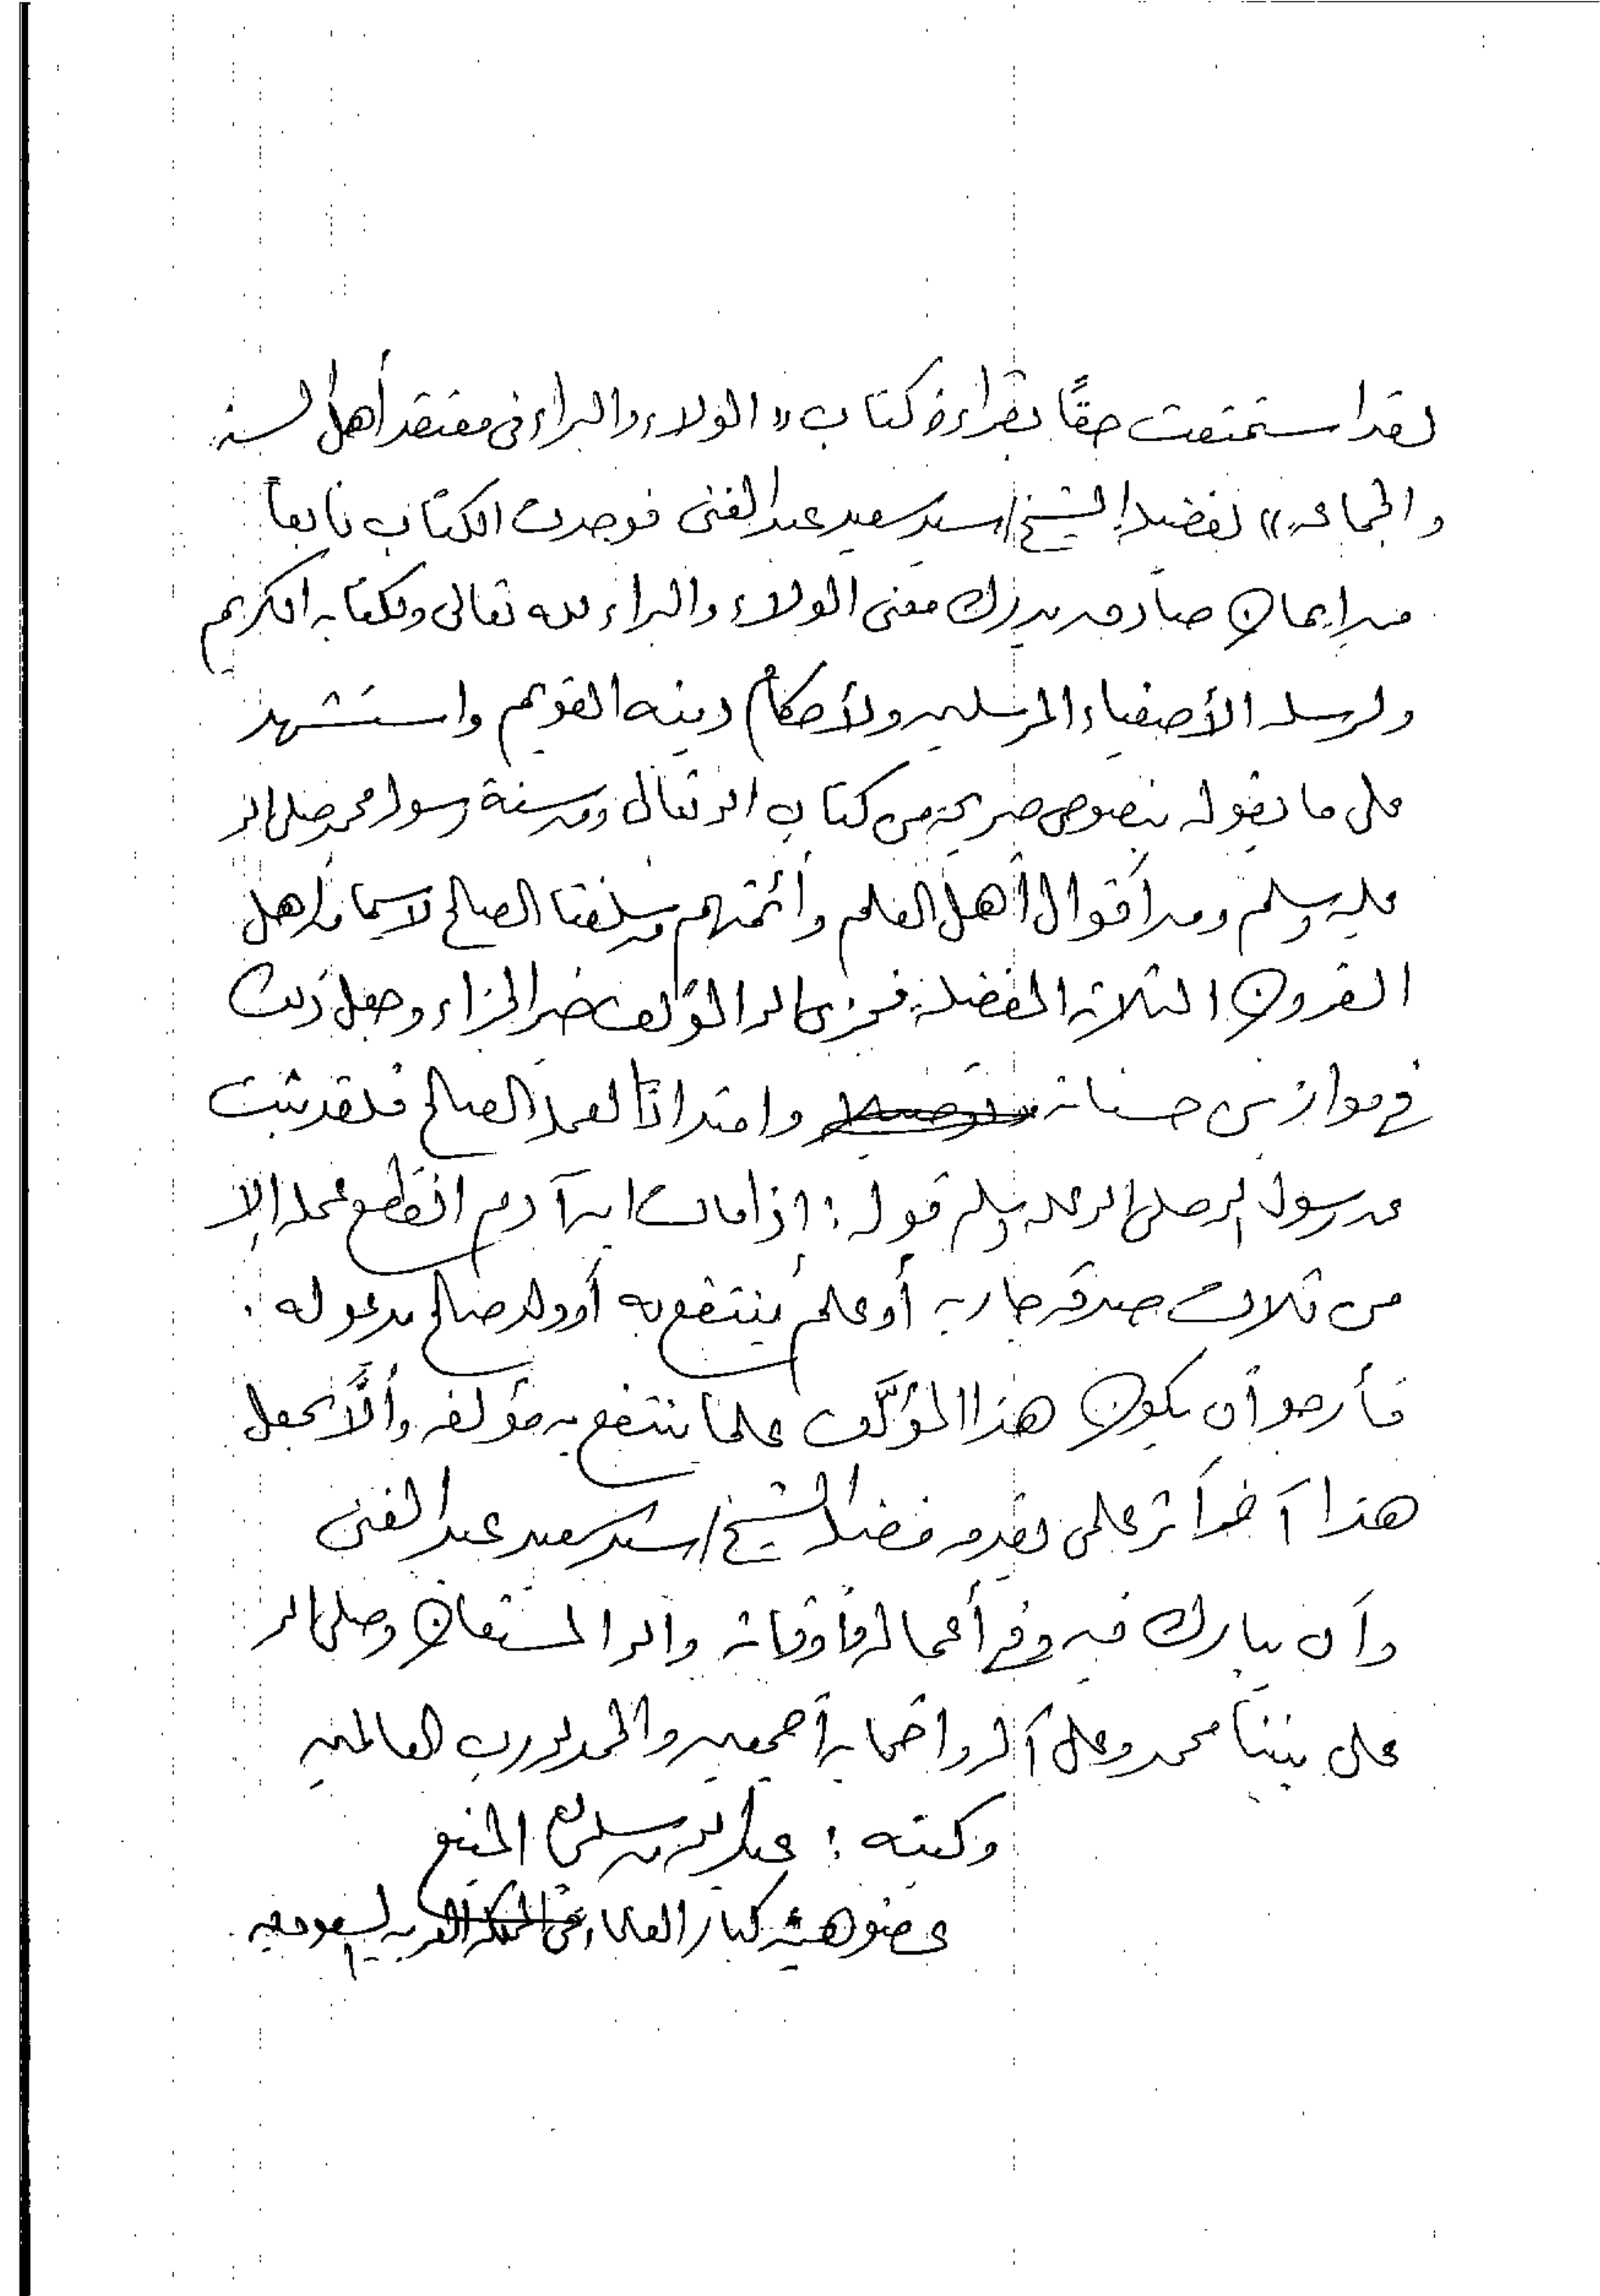 لقد استمتعت حقًا بقراءة كتاب «الولاء والبراء في معتقد أهل السنة
والجماعة» لفضيلة الشيخ/ سيد سعيد عبد الغني فوجدت الكتاب نابعاً
من إيمان صادق يدرك معنى الولاء والبراء لله تعالى ولكتابه الكريم
ولرسله الأصفياء المرسلين ولأحكام دينه القويم واستشهد
على ما يقوله بنصوص صريحة من كتاب الله تعالى ومن سنة رسوله محمد صلى الله
عليه وسلم ومن أقوال أهل العلم وأئمتهم من سلفنا الصالح لاسيما من أهل
القرون الثلاثة المفضلة فجزى الله المؤلف خير الجزاء وجعل ذلك
في موازين حسناته وامتدادًا لعمله الصالح فلقد ثبت
عن رسول الله صلى الله عليه وسلم قوله: إذا مات ابن آدم انقطع عمله إلا
من ثلاث صدقة جارية أو علم ينتفع به أو ولد صالح يدعو له.
فأرجو أن يكون هذا المؤلَّف علما ينتفع به مؤلفه وألَّا يجعل
هذا آخر أثر علمي يقدمه فضيلة الشيخ/ سيد سعيد عبد الغني
وأن يبارك فيه وفي أعماله وأوقاته والله المستعان وصلى الله
على نبينا محمد وعلى آله وأصحابه أجمعين والحمد لله رب العالمين
وكتبه: عبد الله بن سليمان المنيع
عضو هيئة كبار العلماء في المملكة العربية السعودية